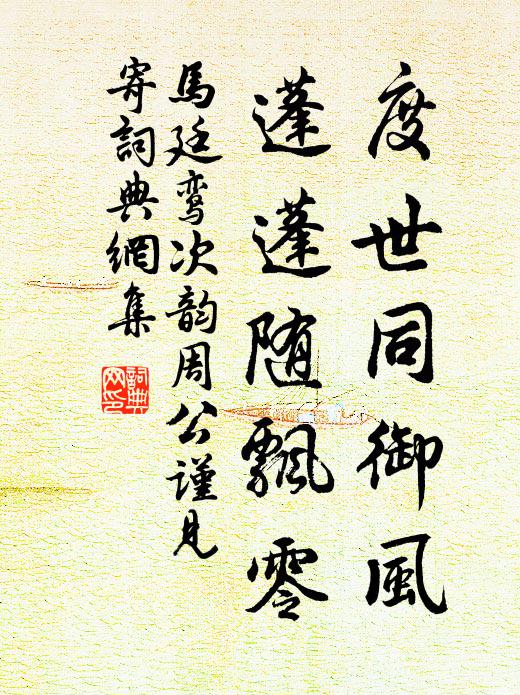 度世同御風
蓬蓬随飄零
馬廷鸾次韵周公謹見
寄詞典網集
詞典
网印